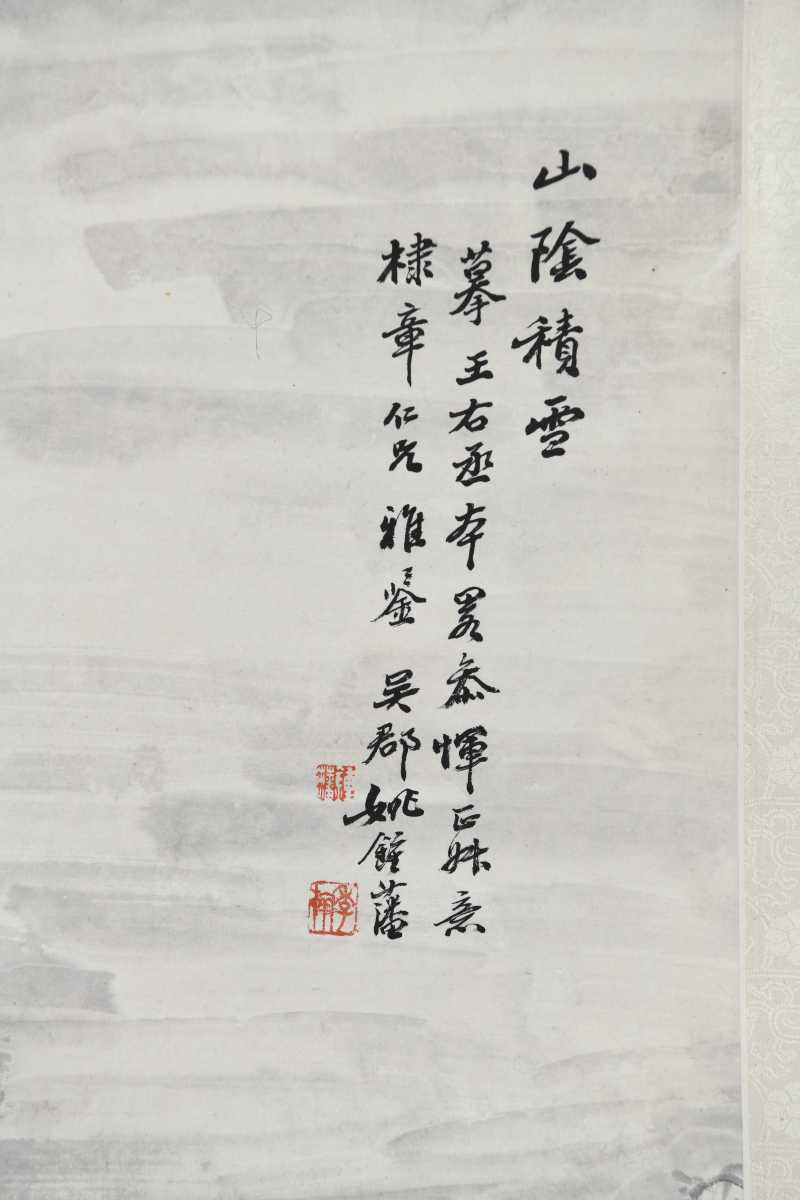 山陰積雪
摹王右丞本畧叅惲正叔意
棣章仁兄雅鑒 吳郡姚鍾藩